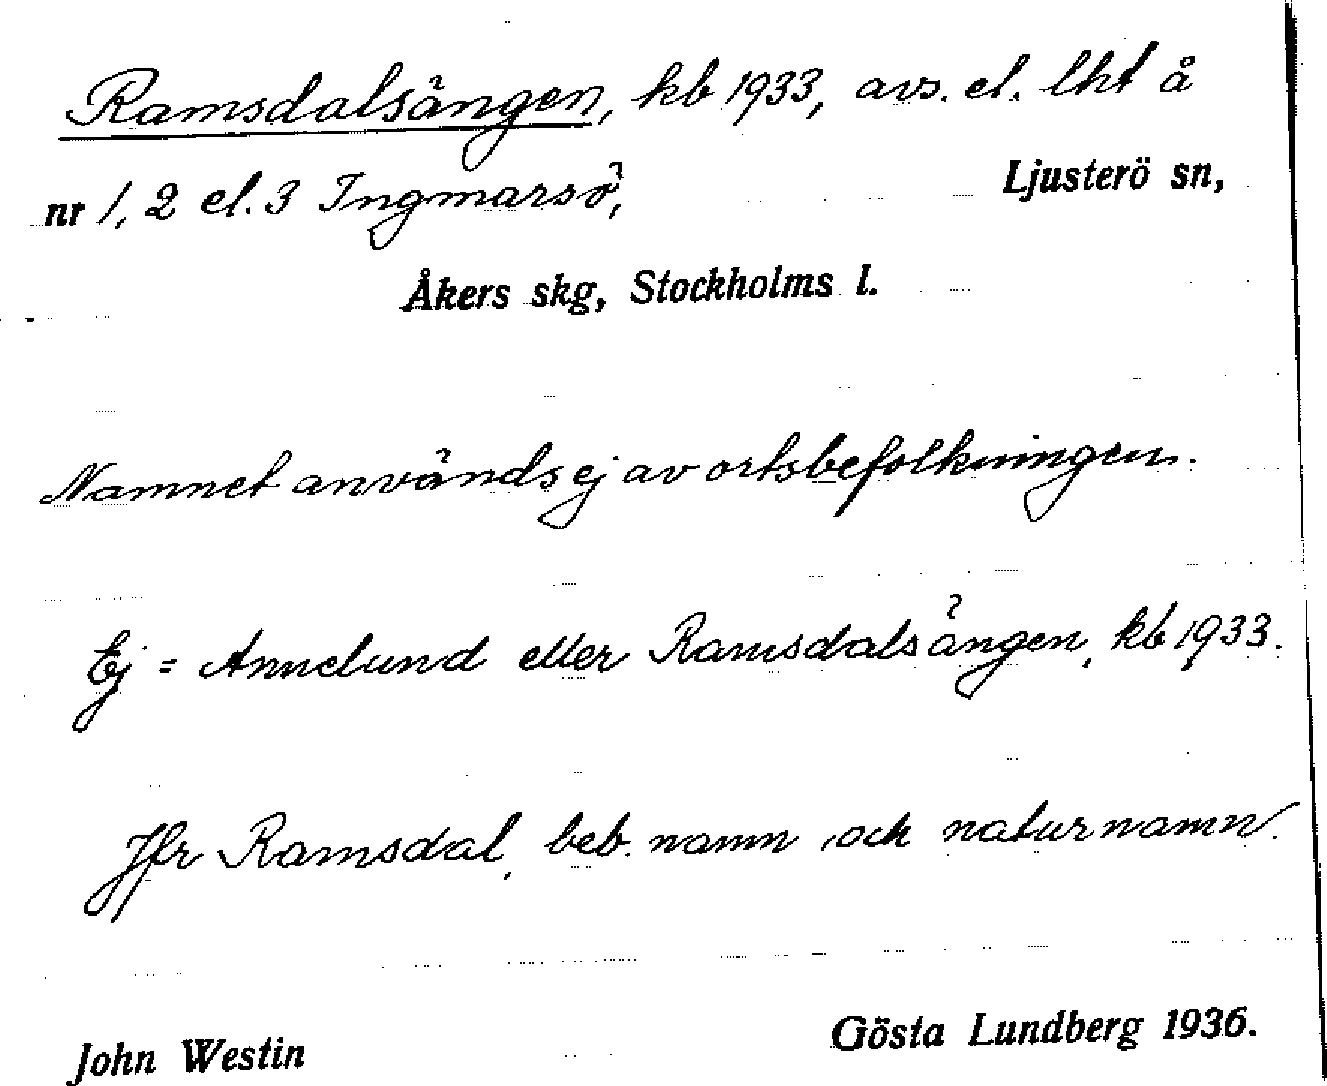 Ramsdalsängen, kb 1933, avs. el. lht å
nr 1, 2 el. 3 Ingmarsö, Ljusterö sn,
Åkers skg, Stockholms l.
Namnet används ej av ortsbefolkningen.
Ej = Annelund eller Ramsdalsängen, kb 1933.
Jfr Ramsdal, beb. namn och naturnamn.
John Westin Gösta Lundberg 1936.